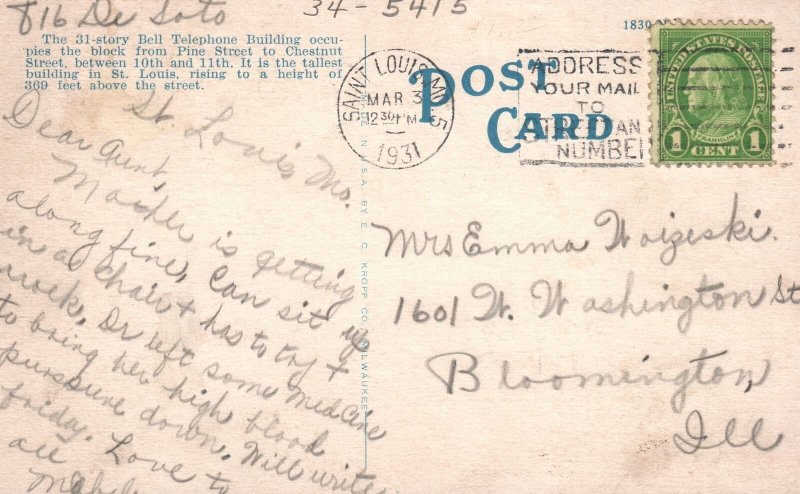 816 De Soto
34-5415
The 31-story Bell Telephone Building occu-
pies the block from Pine Street to Chestnut
Street, between 10th and 11th. It is the tallest
building in St. Louis, rising to a height of
369 feet above the street.
1830
POST
CARD
SAINT LOUIS, MO.
MAR 3
12 30 PM
1931
5
ADDRESS
YOUR MAIL
TO
STREET AN
NUMBER
UNITED STATES POSTAGE
FRANKLIN
1 1
CENT
MADE IN U.S.A. BY E. C. KROPP CO. MILWAUKEE
St. Louis Mo.
Dear Aunt,
Mother is getting
along fine, Can sit up
in a chair & has to try &
walk, Dr left some medicine
to bring her high blood
purssure down. Will write
friday. Love to
all
Mrs Emma Woizeski.
1601 W. Washington St
Bloomington,
Ill